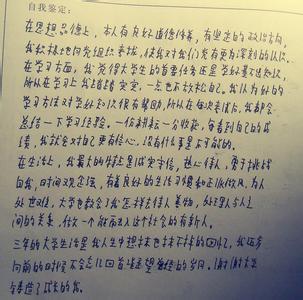 自我鉴定:
在思想品德上，本人有良好道德修养，有坚定的政治方向，
我积极地向党组织靠拢，使我对我们党有更为深刻的认识。
在学习方面，我觉得大学生的首要任务还是学好专业知识，
所以在学习上我踏踏实实，一点也不放松自己。我认为好的
学习方法对学好知识很有帮助，所以在每次考试后，我都会
总结一下学习经验。一份耕耘一分收获，每看到自己的成
绩，我就会对自己更有信心，没有什么事是不可能的。
在生活上，我最大的特点是诚实守信，热心待人，勇于挑战
自我，时间观念强，有着良好的生活习惯和正派作风。为人
处世
大学也教会了我怎样去待人美物，处理人与人之
间的关系，做一个能融入这个社会的有新人。
三年的大学生活是我人生中想抹也抹不掉的回忆，我在奔
向前的时候不会忘记回首遥望昔日的岁月。谢谢大学
与铸造了成长的我。